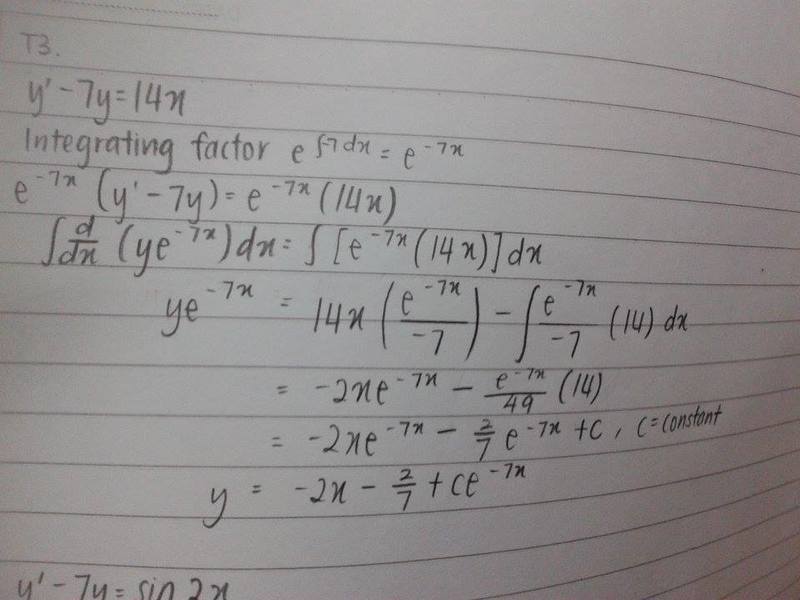 T3.
y' - 7y = 14x
Integrating factor e^∫-7 dx = e^-7x
e^-7x (y' - 7y) = e^-7x (14x)
∫ d/dx (ye^-7x) dx = ∫ [e^-7x (14x)] dx
ye^-7x = 14x (e^-7x / -7) - ∫ e^-7x / -7 (14) dx
= -2xe^-7x - e^-7x / 49 (14)
= -2xe^-7x - 2/7 e^-7x + C, C = constant
y = -2x - 2/7 + ce^-7x
y' - 7y = sin 2x